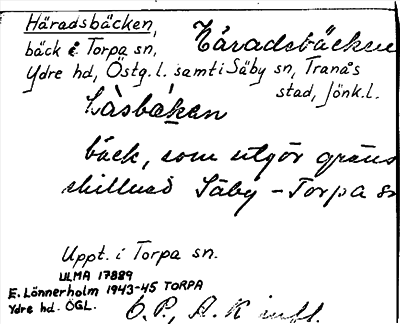 Häradsbäcken,
bäck i Torpa sn, Häradsbäcken
Ydre hd, Östg.l. samt i Säby sn, Tranås
stad, Jönk.l.
Låsbäken
bäck, som utgör gräns
skillnad Säby - Torpa sn
Uppt. i Torpa sn.
ULMA 17889
E. Lönnerholm 1943-45 TORPA
Ydre hd. ÖGL.
O.P., A.K